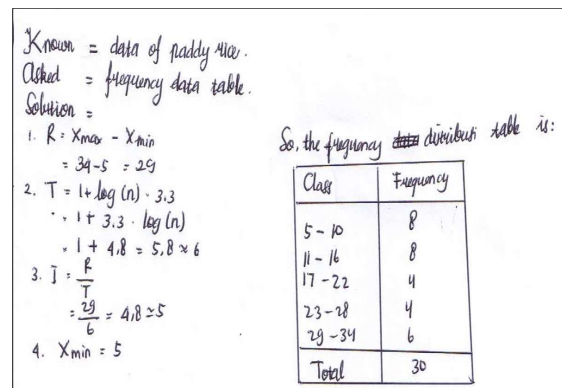 Known = data of paddy rice.
Asked = frequency data table.
Solution =
1. R = Xmax - Xmin
= 34-5 = 29
2. T = 1+ log (n) · 3.3
= 1 + 3.3 · log (n)
= 1 + 4,8 = 5,8 ≈ 6
3. I = R/T
= 29/6 = 4,8 ≈ 5
4. Xmin = 5
So, the frequency distribusi table is:
Class Frequency
5 - 10 8
11 - 16 8
17 - 22 4
23 - 28 4
29 - 34 6
Total 30